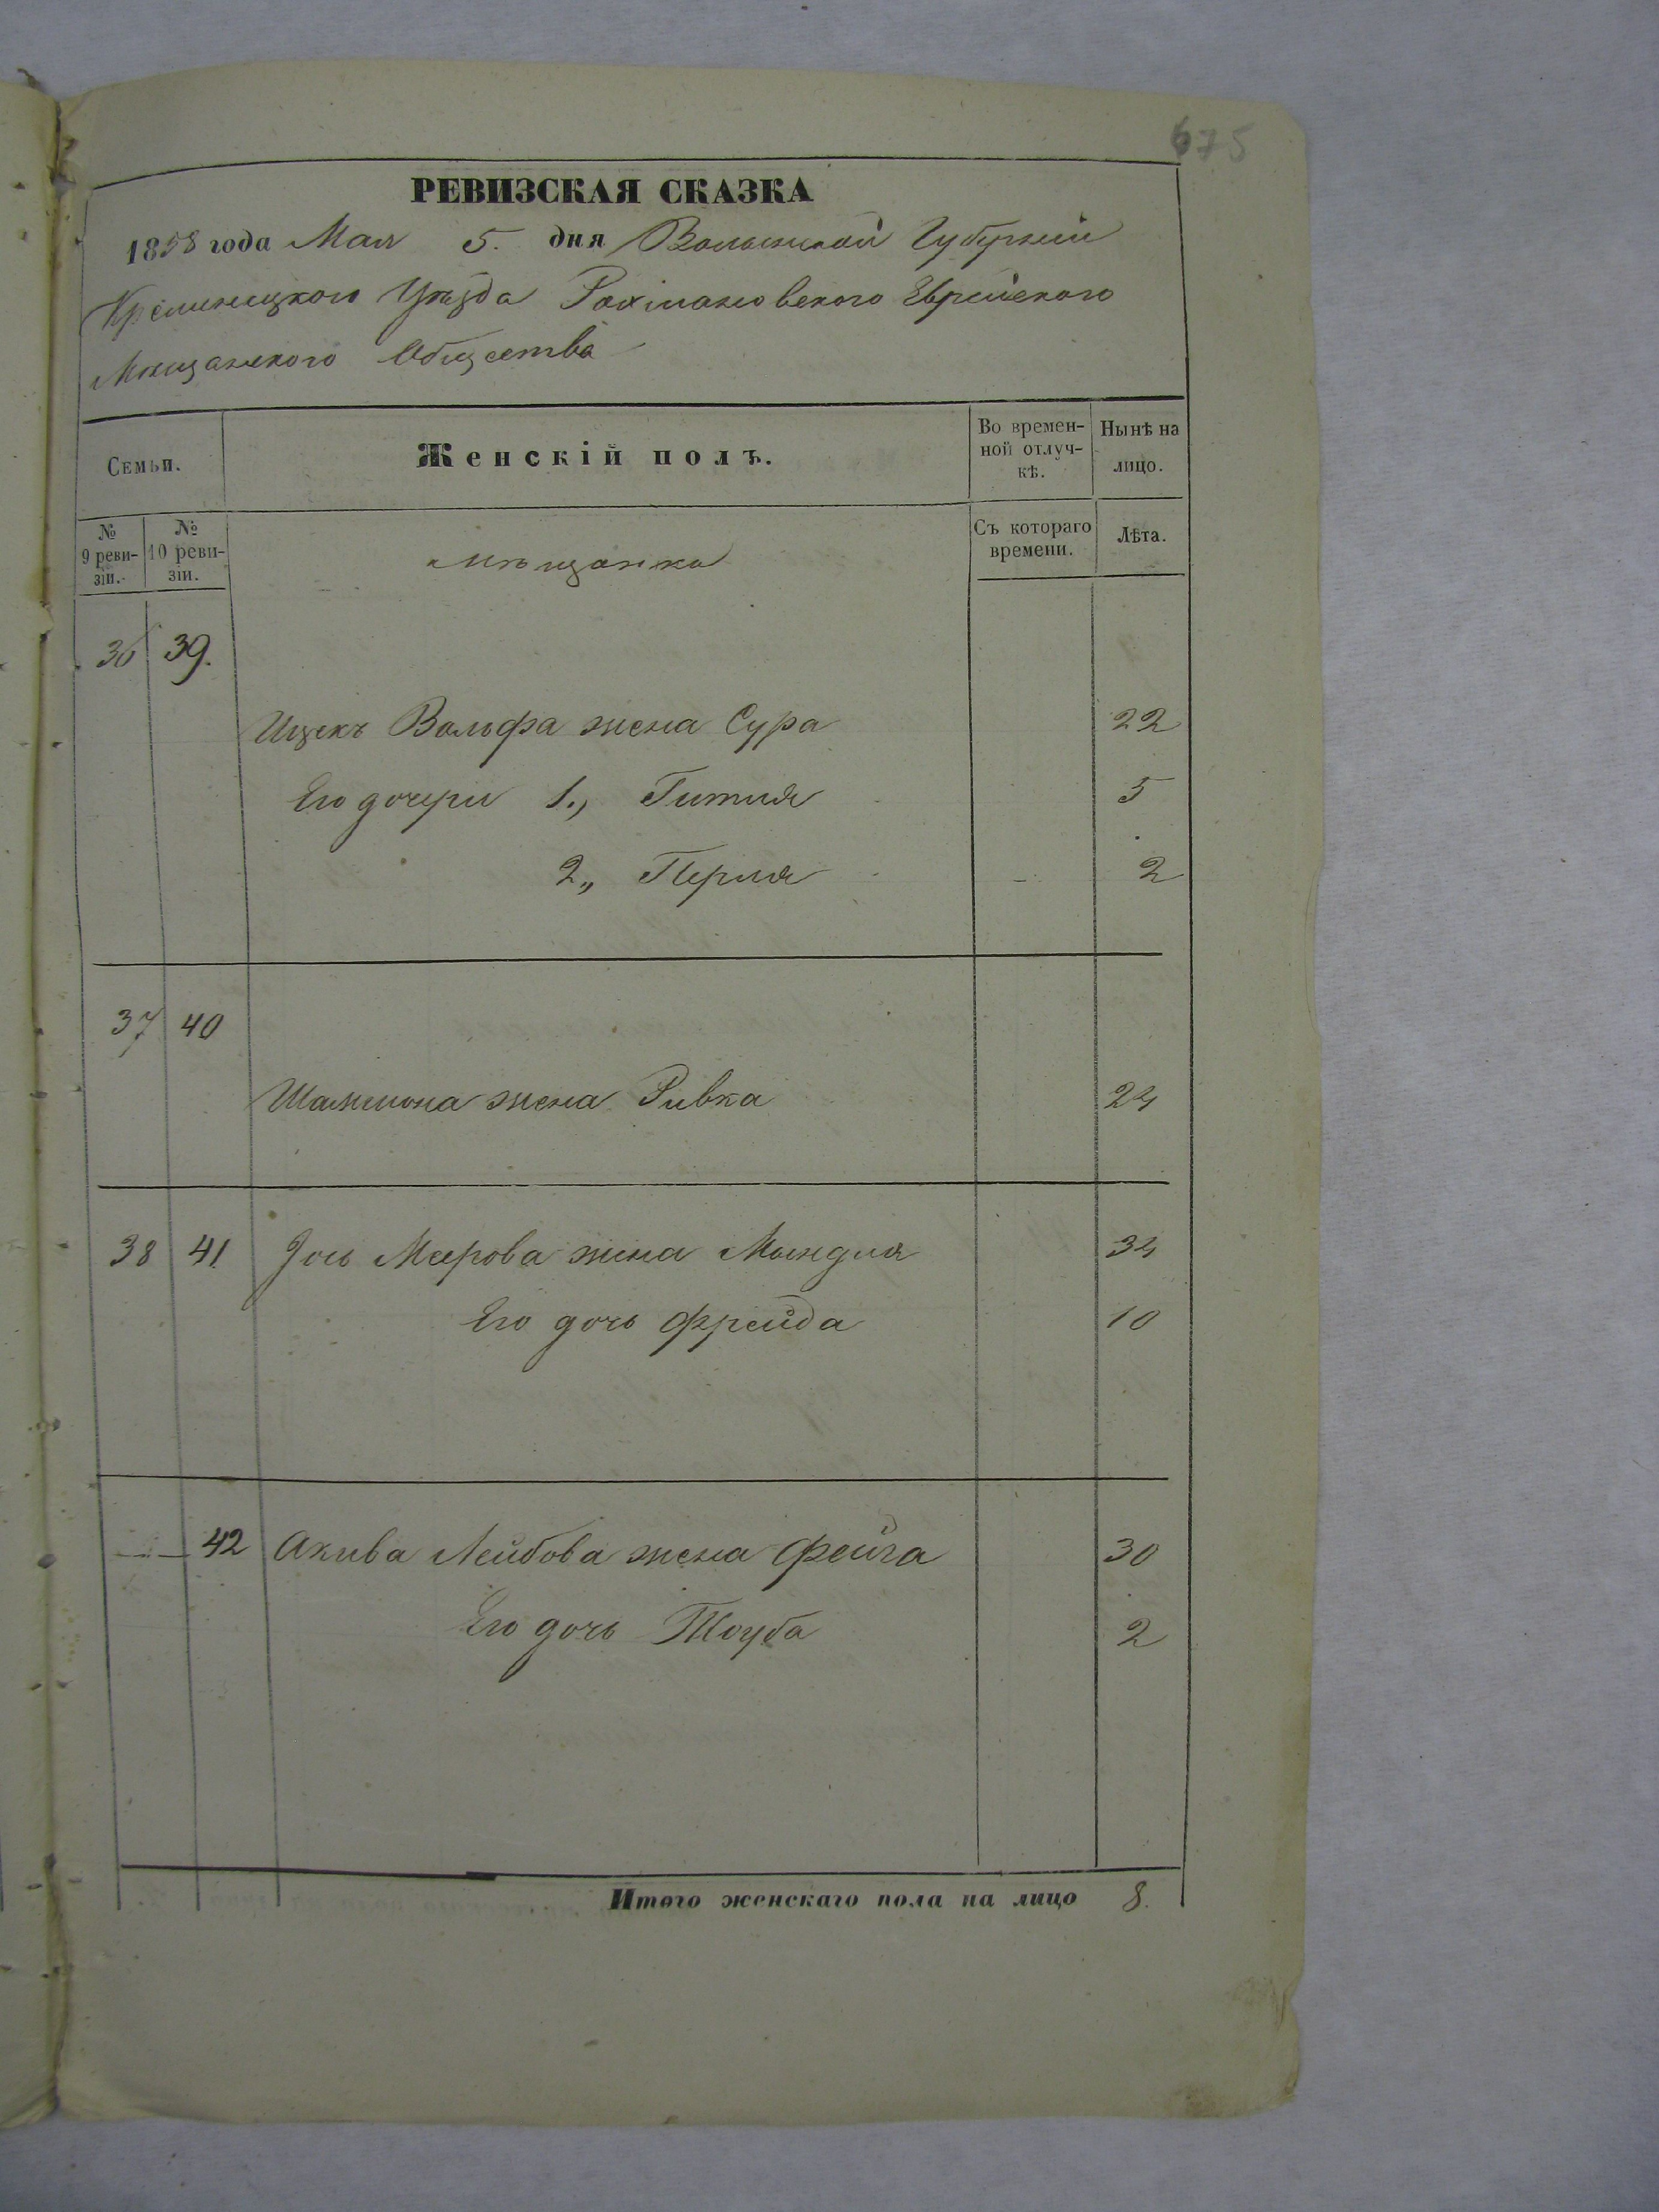 675
РЕВИЗСКАЯ СКАЗКА
1858 года Мая 5. дня Волынской Губернии
Кременецкого Уѣзда Рахмановского Еврейского
Мѣщанского Общества
Семьи.
Женскій полъ.
Во времен-
ной отлуч-
кѣ.
Нынѣ на
лицо.
№
9 реви-
зіи.
№
10 реви-
зіи.
мѣщанка
Съ котораго
времени.
Лѣта.
36 39.
Ицекъ Вольфа жена Сура 22
Его дочери 1., Гитля 5
2,, Перля 2
37 40
Шамшона жена Ривка 24
38 41 Іось Меерова жена Мындля 34
Его дочь Фрейда 10
42 Акива Лейбова жена Фейга 30
Его дочь Тоуба 2
Итого женскаго пола на лицо 8.